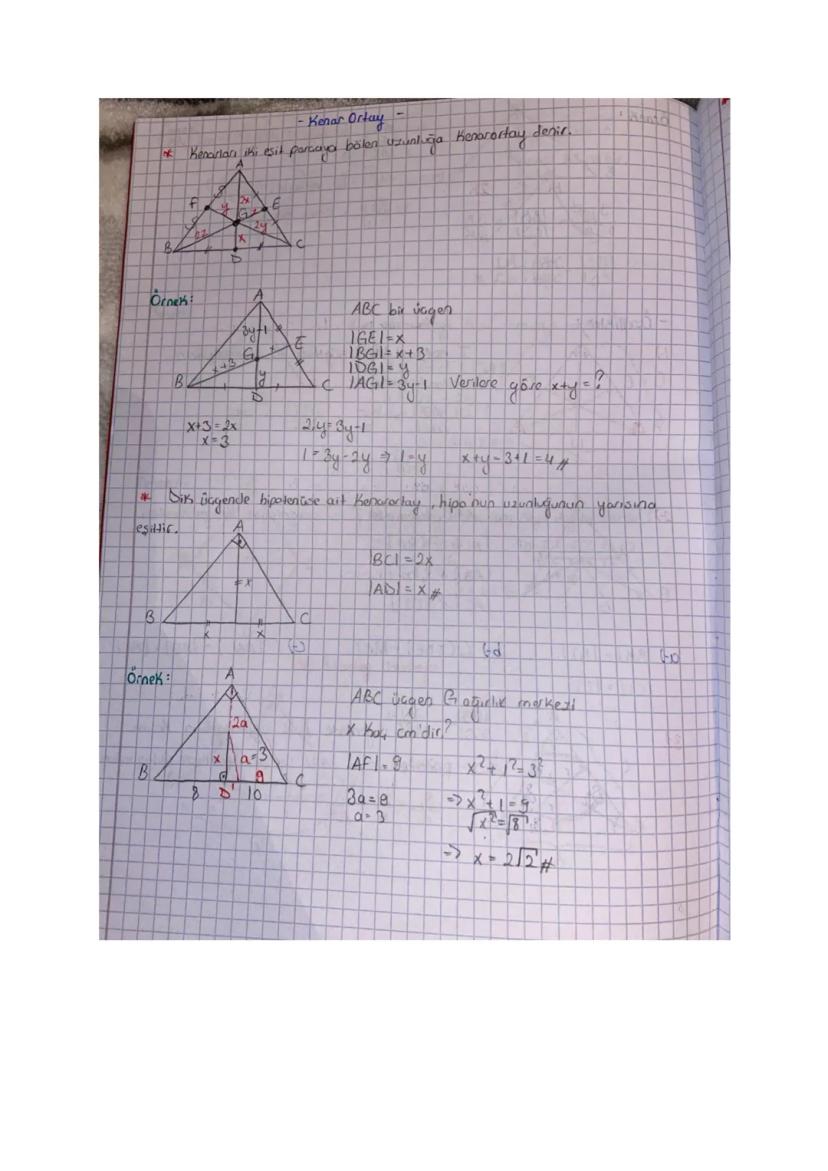 - Kenar Ortay -
* Kenarları iki eşit parçaya bölen uzunluğa Kenarortay denir.
A
F y 2x E
G z
2z 2y
x
B D C
Örnek:
A
3y-1
G x E
x+3
y
B D C
ABC bir üçgen
|GE|=x
|BG|=x+3
|DG|=y
|AG|=3y-1 Verilere göre x+y=?
x+3=2x
x=3
2.y=3y-1
1=3y-2y ⇒ 1=y x+y=3+1=4 //
* Dik üçgende hipotenüse ait Kenarortay, hipo'nun uzunluğunun yarısına
eşittir.
A
x
B C
x x
|BC|=2x
|AD|=x //
Örnek:
A
2a
x a=3
B 9 C
8 D 1 10
ABC üçgen G ağırlık merkezi
x Kaç cm'dir?
|AF|=9
3a=9
a=3
x²+1²=3²
⇒ x²+1=9
√x²=√8
⇒ x=2√2 //